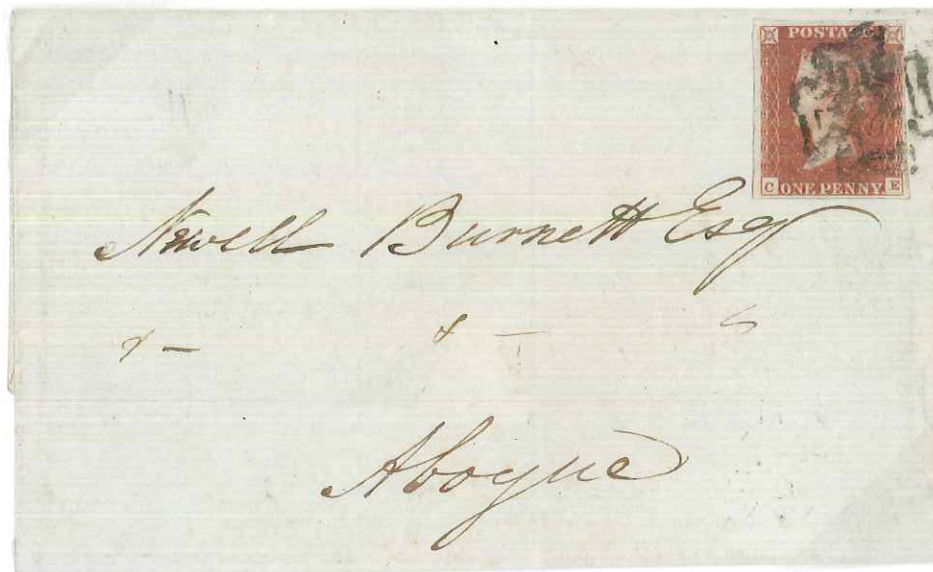 POSTAGE
C ONE PENNY E
Newell Burnett Esq
Aboyne